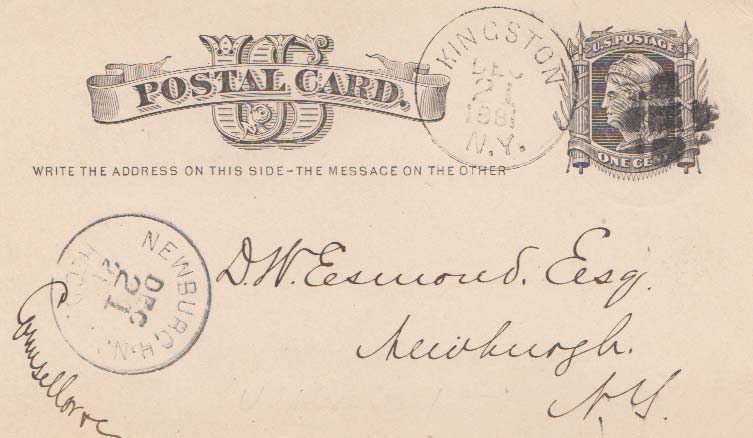 US
POSTAL CARD.
WRITE THE ADDRESS ON THIS SIDE - THE MESSAGE ON THE OTHER
KINGSTON
DEC
21
1881
N.Y.
U.S. POSTAGE
ONE CENT
NEWBURGH. N.
DEC
21
D. W. Esmond. Esq.
Newburgh.
N.Y.